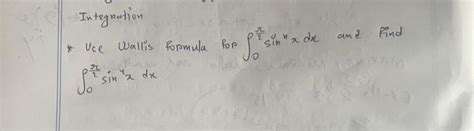 Integration
* Use Wallis formula for ∫₀^(π/2) sin⁴x dx and find
∫₀^(π/2) sin⁴x dx